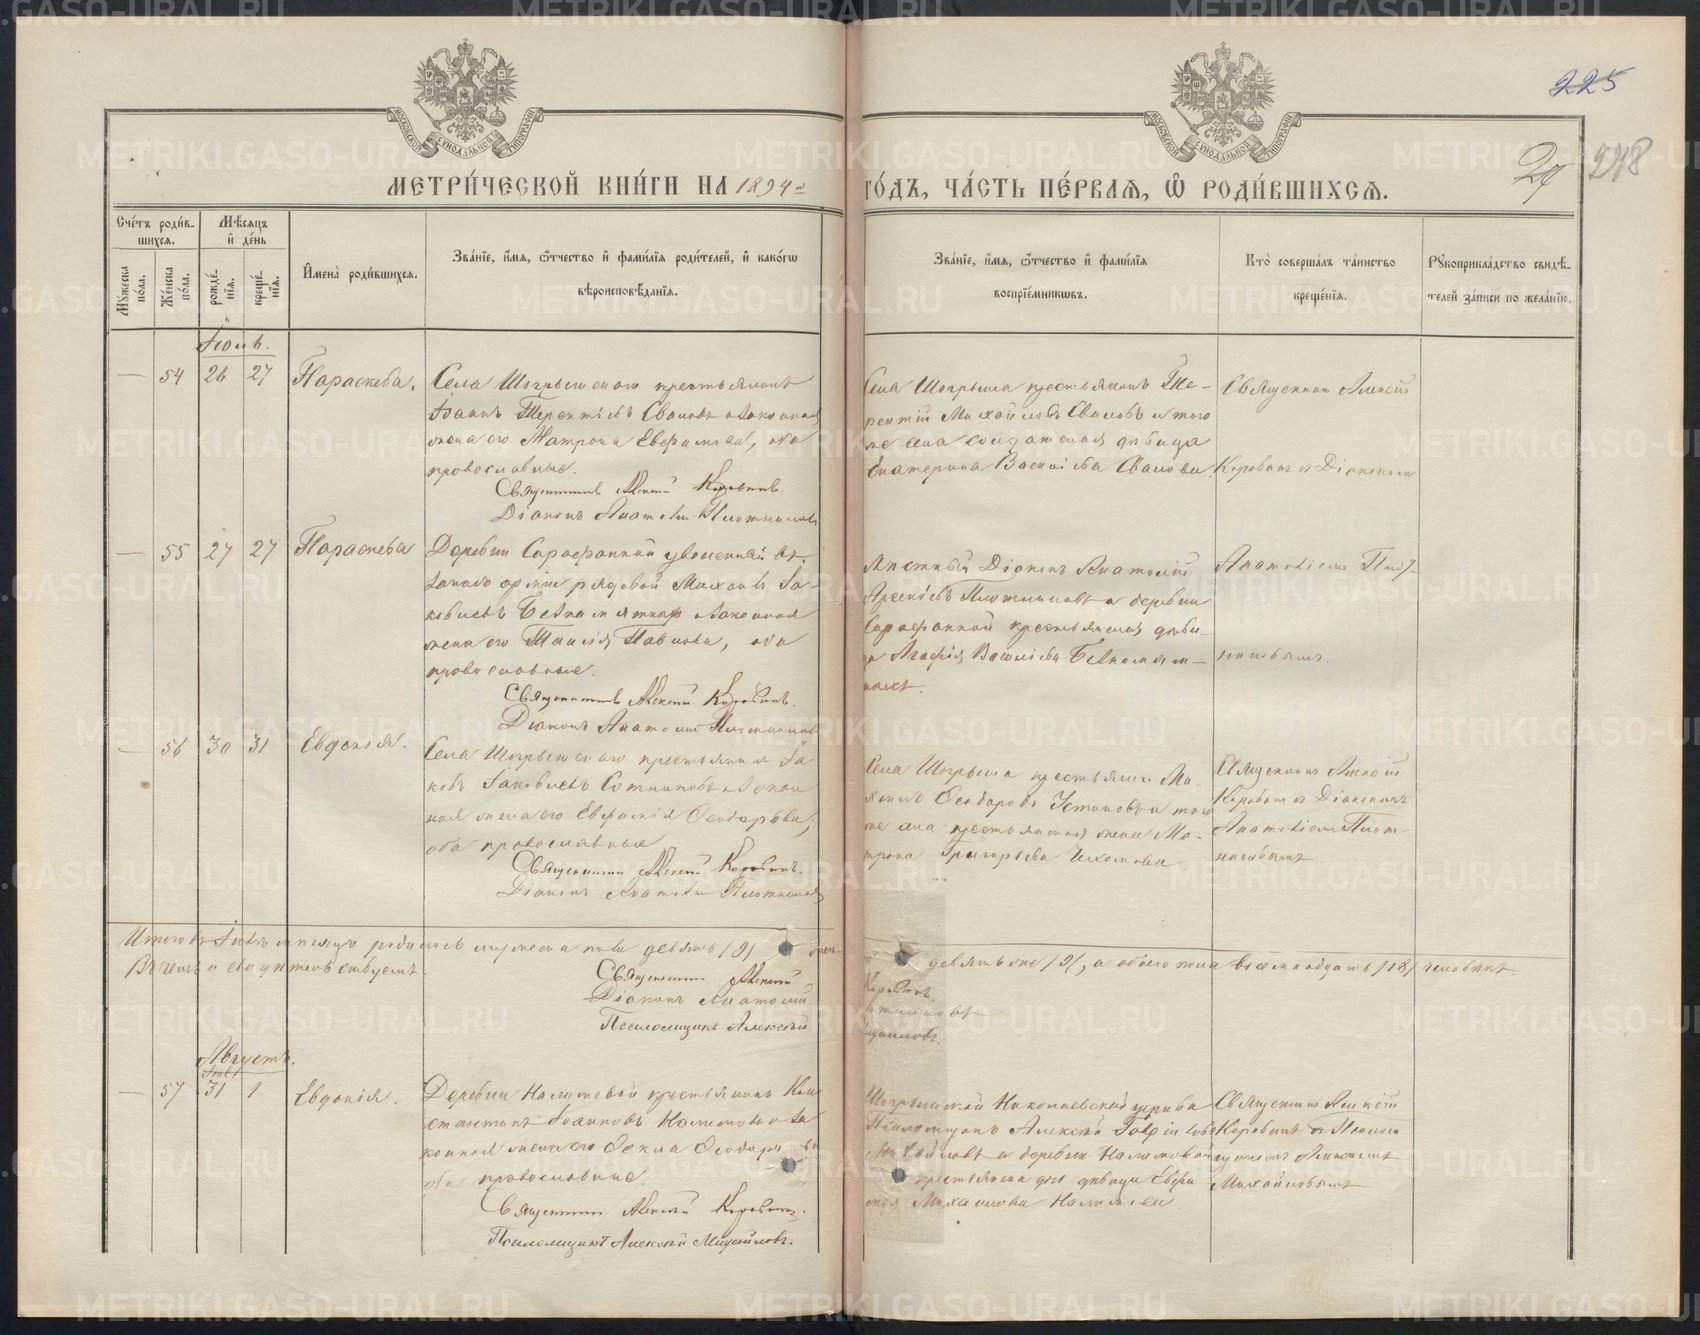 225
27
248
МЕТРИ́ЧЕСКОЙ КНИ́ГИ НА 1894
ГО́ДЪ, ЧА́СТЬ ПЕ́РВАЯ, Ѽ РОДИ́ВШИХСЯ.
Сче́тъ роди́вшихся.
Мꙋ́жеска по́ла.
Же́нска по́ла.
Мѣ́сяцъ и де́нь
рожде́нїя.
креще́нїя.
Имена̀ роди́вшихся.
Зва́нїе, и́мя, ѻ́тчество и фами́лїя роди́телей, и како́гѡ
вѣроисповѣ́данїя.
Зва́нїе, и́мя, ѻ́тчество и фами́лїя
воспрїе́мникѡвъ.
Кто̀ соверша́лъ та́инство
креще́нїя.
Рꙋкоприкла́дство свидѣ́-
телей за́писи по жела́нїю.
Іюль.
— 54 26 27 Параскева.
Села Шогрышскаго крестьянинъ
Іоаннъ Терентіевъ Сваловъ и законная
жена его Матрона Евфимова, оба
православные.
Священникъ Алексій Коровинъ.
Діаконъ Анатолій Плотниковъ
Села Шогрыша крестьянинъ Те-
рентій Михайловъ Сваловъ и того
же села солдатская дѣвица
Екатерина Васильева Свалова.
Священникъ Алексій
Коровинъ съ Діакономъ
— 55 27 27 Параскева
Деревни Сарафанной уволенный въ
запасъ арміи рядовой Михаилъ Іа-
ковлевъ и законная
жена его Таисія Павлова, оба
православные.
Священникъ Алексій Коровинъ.
Діаконъ Анатолій Плотниковъ
Мѣстный Діаконъ Анатолій
Арсеніевъ Плотниковъ и деревни
Сарафанной крестьянская дѣви-
ца Агафія Васильева
Анатоліемъ Плот-
никовымъ.
— 56 30 31 Евдокія.
Села Шогрышскаго крестьянинъ Іа-
ковъ Іаковлевъ Сотниковъ и закон
ная жена его Евфросинія Ѳеодорова,
оба православные
Священникъ Алексій Коровинъ.
Діаконъ Анатолій Плотниковъ
Села Шогрыша крестьянинъ Ми-
хаилъ Ѳеодоровъ Устиновъ и того
же села крестьянская жена Ма-
трона Григорьева
Священникъ Алексій
Коровинъ съ Діакономъ
Анатоліемъ Плот-
никовымъ.
Итого въ Іюлѣ мѣсяцѣ родилось мужеска пола девять /9/ женска девять же /9/, а обоего пола восемнадцать /18/ человѣкъ.
Въ чемъ и свидѣтельствуемъ
Священникъ Алексій Коровинъ.
Діаконъ Анатолій Плотниковъ
Псаломщикъ Алексій Михайловъ.
Августъ.
Іюль
— 57 31 1 Евдокія.
Деревни Налимовой крестьянинъ Кон
стантинъ Іоанновъ Налимовъ и за
конная жена его Ѳекла Ѳеодорова
оба православные.
Священникъ Алексій Коровинъ.
Псаломщикъ Алексій Михайловъ.
Шогрышской Николаевской церкви
Псаломщикъ Алексій Гавріиловъ
Михайловъ и деревни Налимовой
крестьянская дѣвица
Михаилова Налимова
Священникъ Алексій
Коровинъ съ Псалом
щикомъ Алексѣемъ
Михайловымъ
METRIKI.GASO-URAL.RU